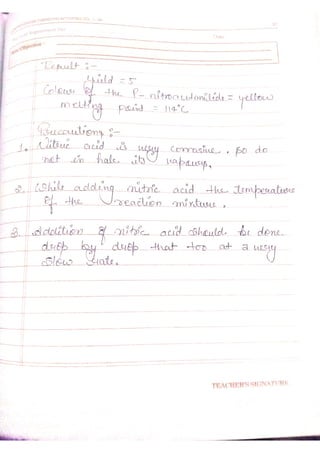 Date
Result :-
Yield = 5
Colour of the P- nitroacetanilide = yellow
melting point = 114°C
Precautions :-
1. Nitric acid is very corrosive, so do
not in hale its vapours.
2. While adding nitric acid the temperature
of the reaction mixture.
3. Addition of nitric acid should be done
drop by drop that too at a very
slow rate.
TEACHER'S SIGNATURE